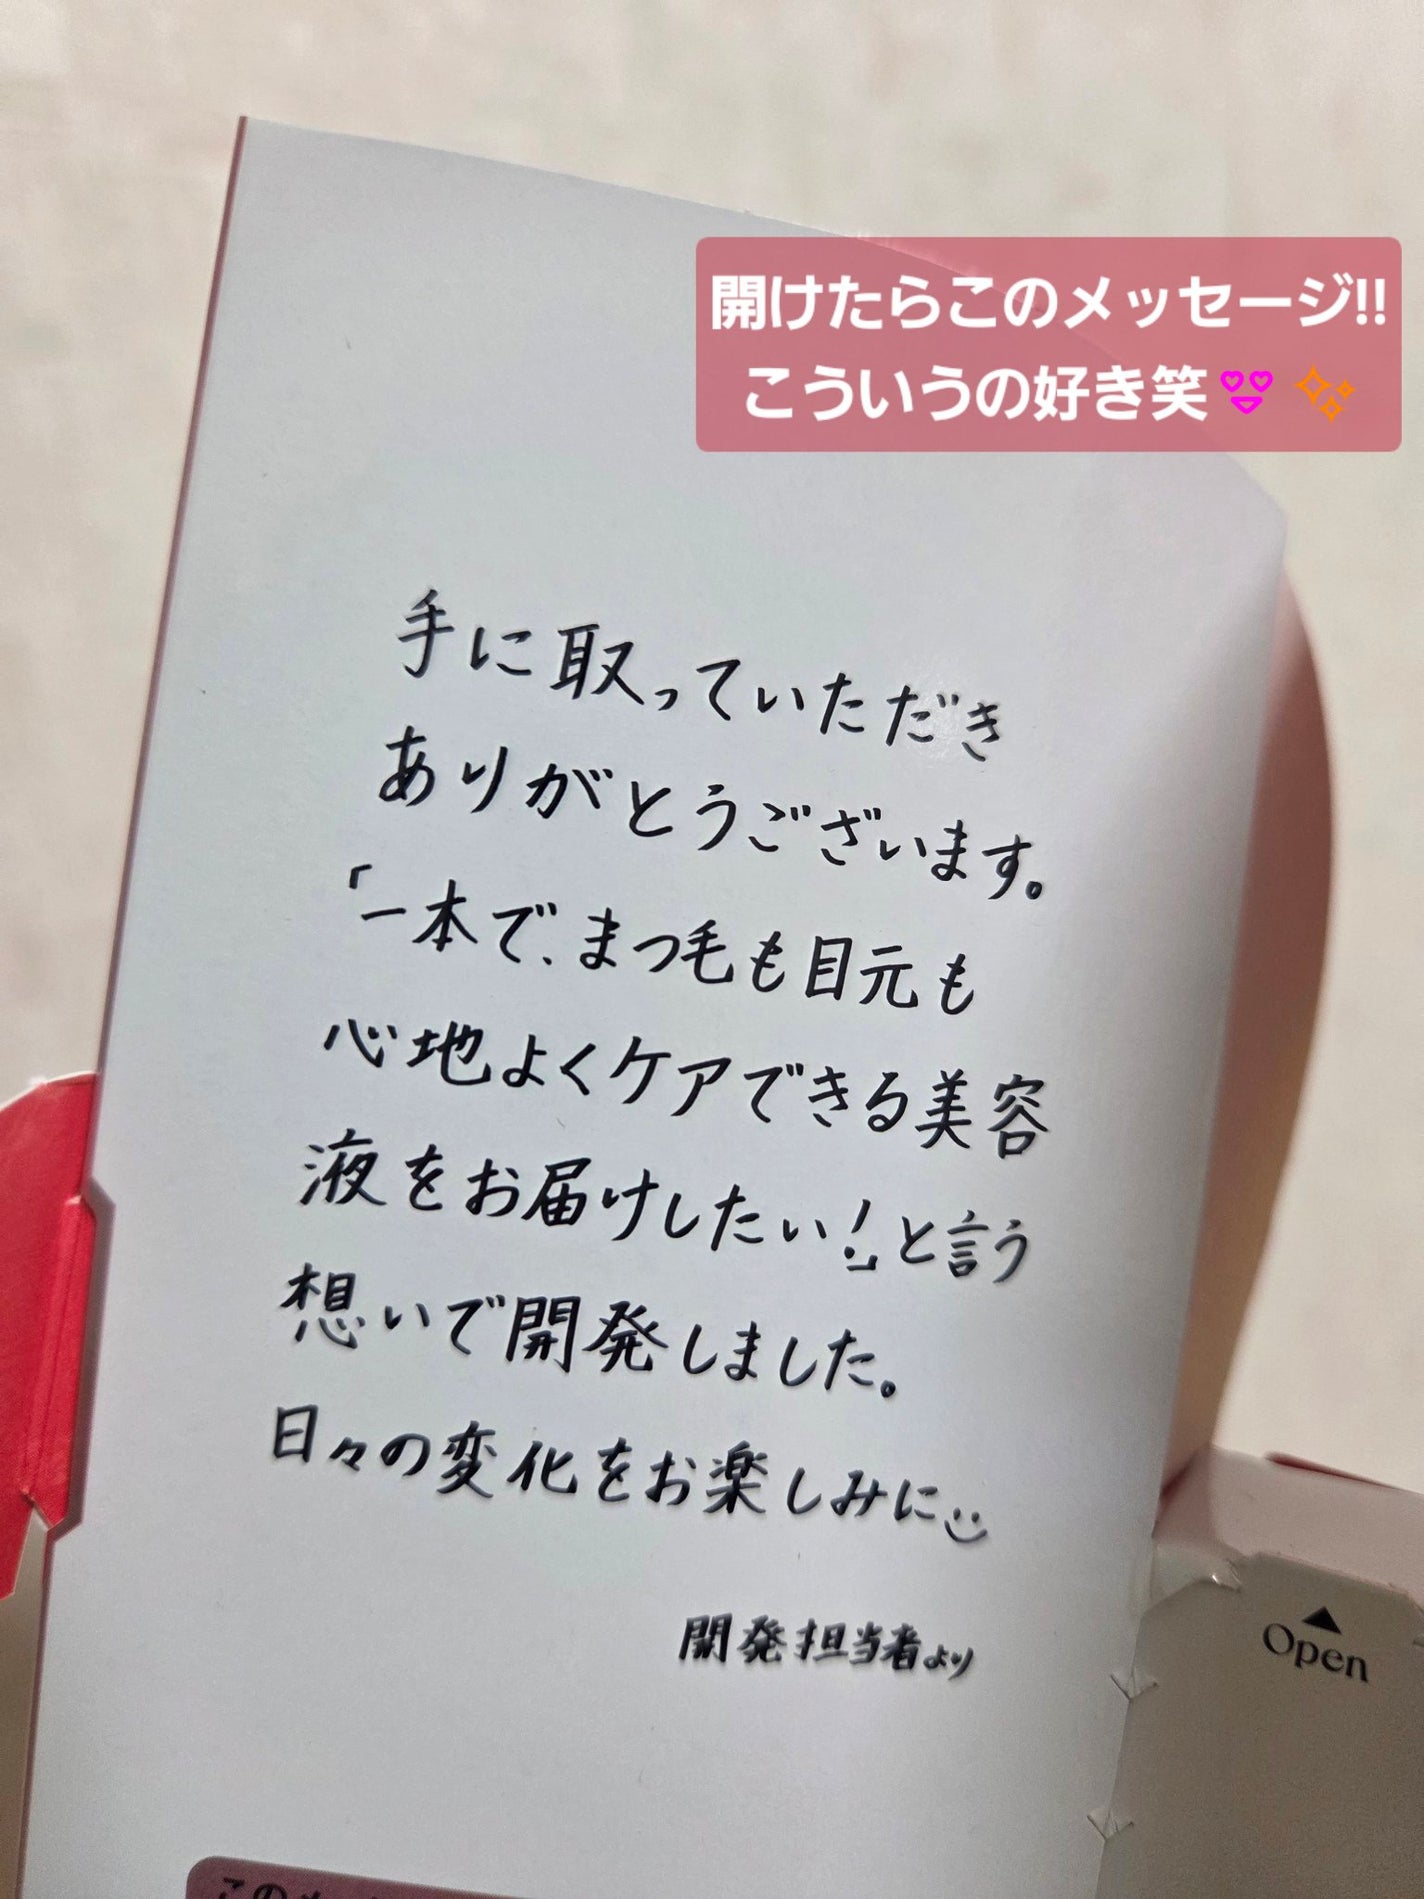 開けたらこのメッセージ!!
こういうの好き笑😍✨
手に取っていただき
ありがとうございます。
「一本で、まつ毛も目元も
心地よくケアできる美容
液をお届けしたい!」と言う
想いで開発しました。
日々の変化をお楽しみに
開発担当者より
▲
Open